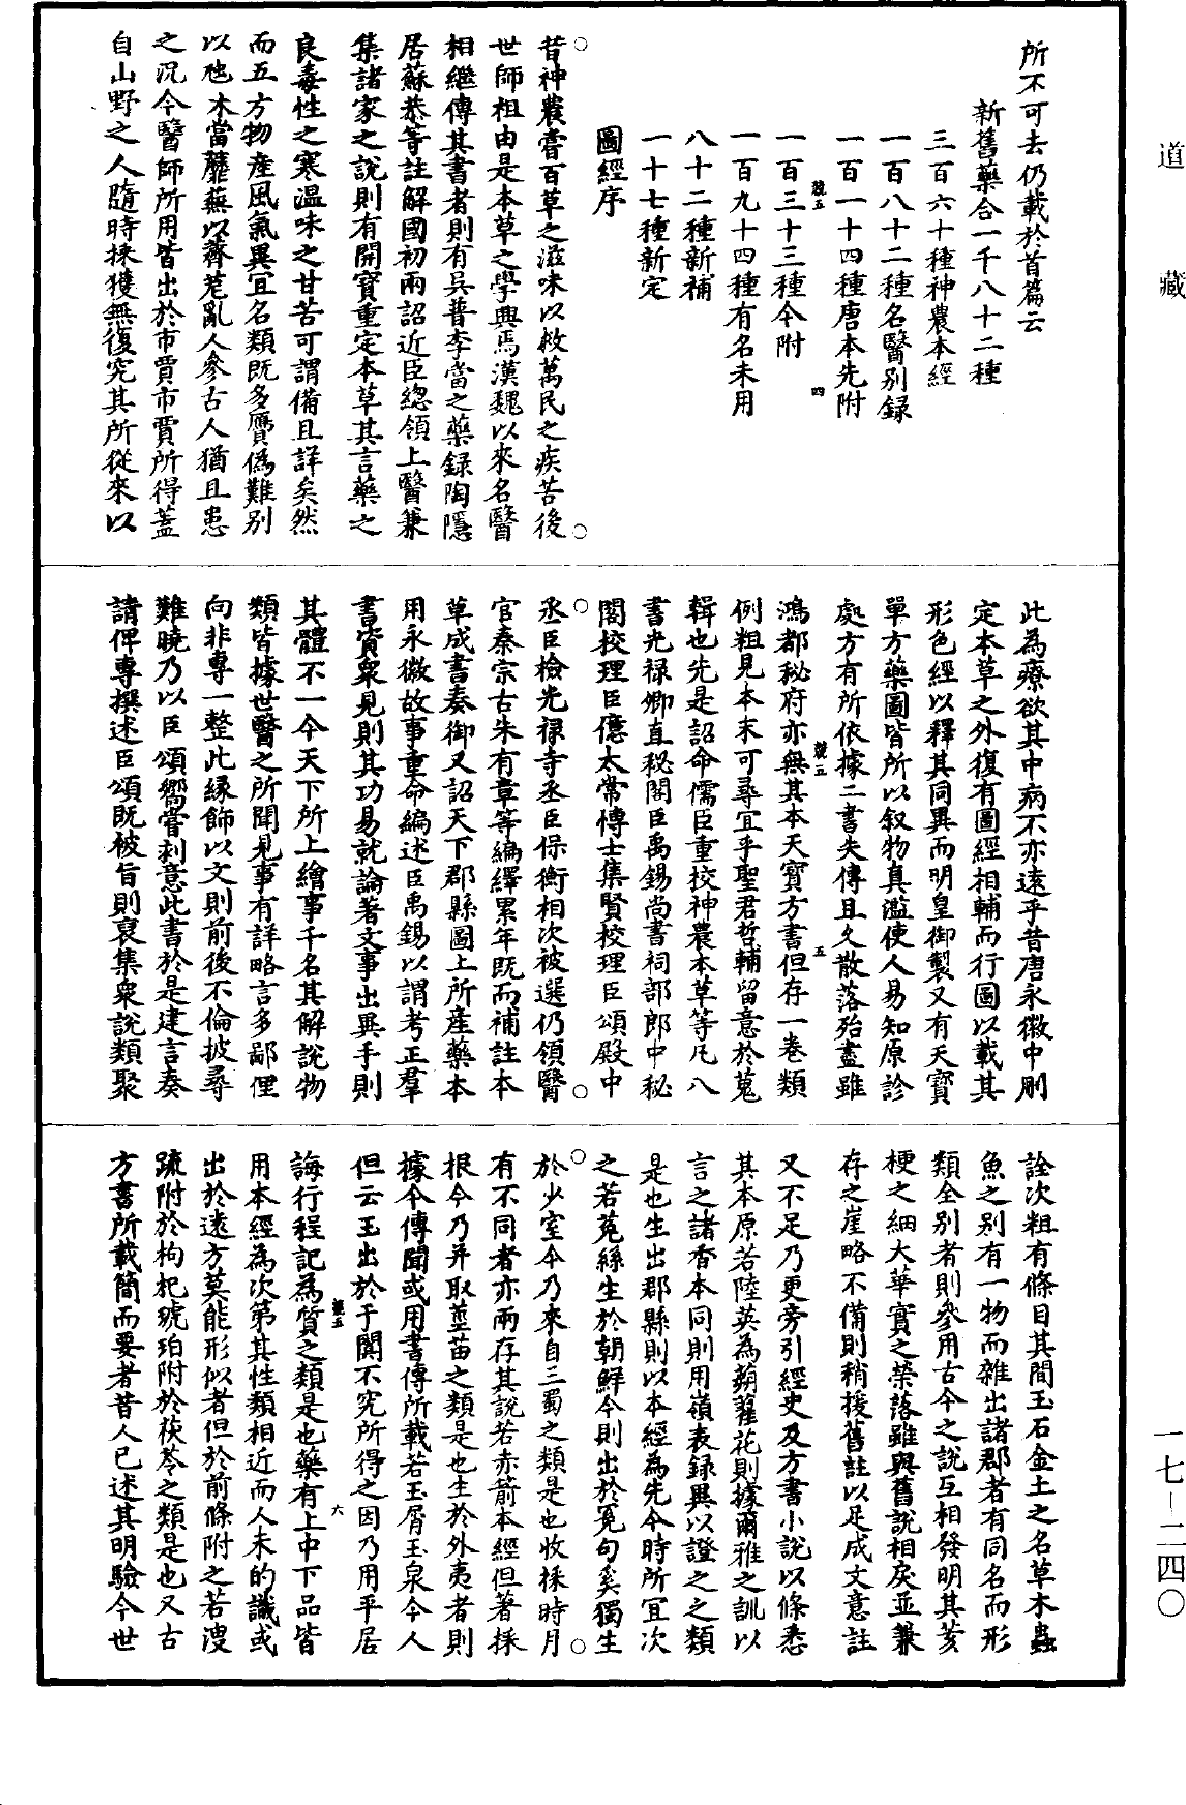 道藏
所不可去仍載於首篇云
新舊藥合一千八十二種
三百六十種神農本經
一百八十二種名醫別錄
一百一十四種唐本先附
一百三十三種今附
一百九十四種有名未用
八十二種新補
一十七種新定
圖經序
昔神農嘗百草之滋味以救萬民之疾苦後
世師祖由是本草之學興焉漢魏以來名醫
相繼傳其書者則有吳普李當之藥錄陶隱
居蘇恭等註解國初兩詔近臣緫領上醫兼
集諸家之說則有開寶重定本草其言藥之
良毒性之寒溫味之甘苦可謂備且詳矣然
而五方物產風氣異宜名類既多贗偽難別
以虺床當蘼蕪以薺苨亂人參古人猶且患
之況今醫師所用皆出於市賈市賈所得蓋
自山野之人隨時採獲無復究其所從來以
此為療欲其中病不亦遠乎昔唐永徽中刪
定本草之外復有圖經相輔而行圖以載其
形色經以釋其同異而明皇御製又有天寶
單方藥圖皆所以叙物真濫使人易知原診
處方有所依據二書失傳且久散落殆盡雖
鴻都秘府亦無其本天寶方書但存一卷類
例粗見本末可尋宜乎聖君哲輔留意於蒐
輯也先是詔命儒臣重校神農本草等凡八
書光祿卿直秘閣臣禹錫尚書祠部郎中秘
閣校理臣億太常博士集賢校理臣頌殿中
丞臣檢光祿寺丞臣保衡相次被選仍領醫
官秦宗古朱有章等編繹累年既而補註本
草成書奏御又詔天下郡縣圖上所產藥本
用永徽故事重命編述臣禹錫以謂考正羣
書資眾見則其功易就論著文事出異手則
其體不一今天下所上繪事千名其解說物
類皆據世醫之所聞見事有詳略言多鄙俚
向非專一整比緣飾以文則前後不倫披尋
難曉乃以臣頌嚮嘗刻意此書於是建言奏
請俾專撰述臣頌既被旨則裒集眾說類聚
詮次粗有條目其間玉石金土之名草木蟲
魚之別有一物而雜出諸郡者有同名而形
類全別者則參用古今之說互相發明其荄
梗之細大華實之榮落雖與舊說相戾並兼
存之崖略不備則稍援舊註以足成文意註
又不足乃更旁引經史及方書小說以條悉
其本原若陸英為蒴藋花則據爾雅之訓以
言之諸香本同則用嶺表錄異以證之之類
是也生出郡縣則以本經為先今時所宜次
之若菟絲生於朝鮮今則出於冤句奚獨生
於少室今乃來自三蜀之類是也收採時月
有不同者亦兩存其說若赤箭本經但著採
根今乃并取莖苗之類是也生於外夷者則
據今傳聞或用書傳所載若玉屑玉泉今人
但云玉出於于闐不究所得之因乃用平居
誨行程記為質之類是也藥有上中下品皆
用本經為次第其性類相近而人未的識或
出於遠方莫能形似者但於前條附之若溲
疏附於枸杞琥珀附於茯苓之類是也又古
方書所載簡而要者昔人已述其明驗今世
一七–二四〇